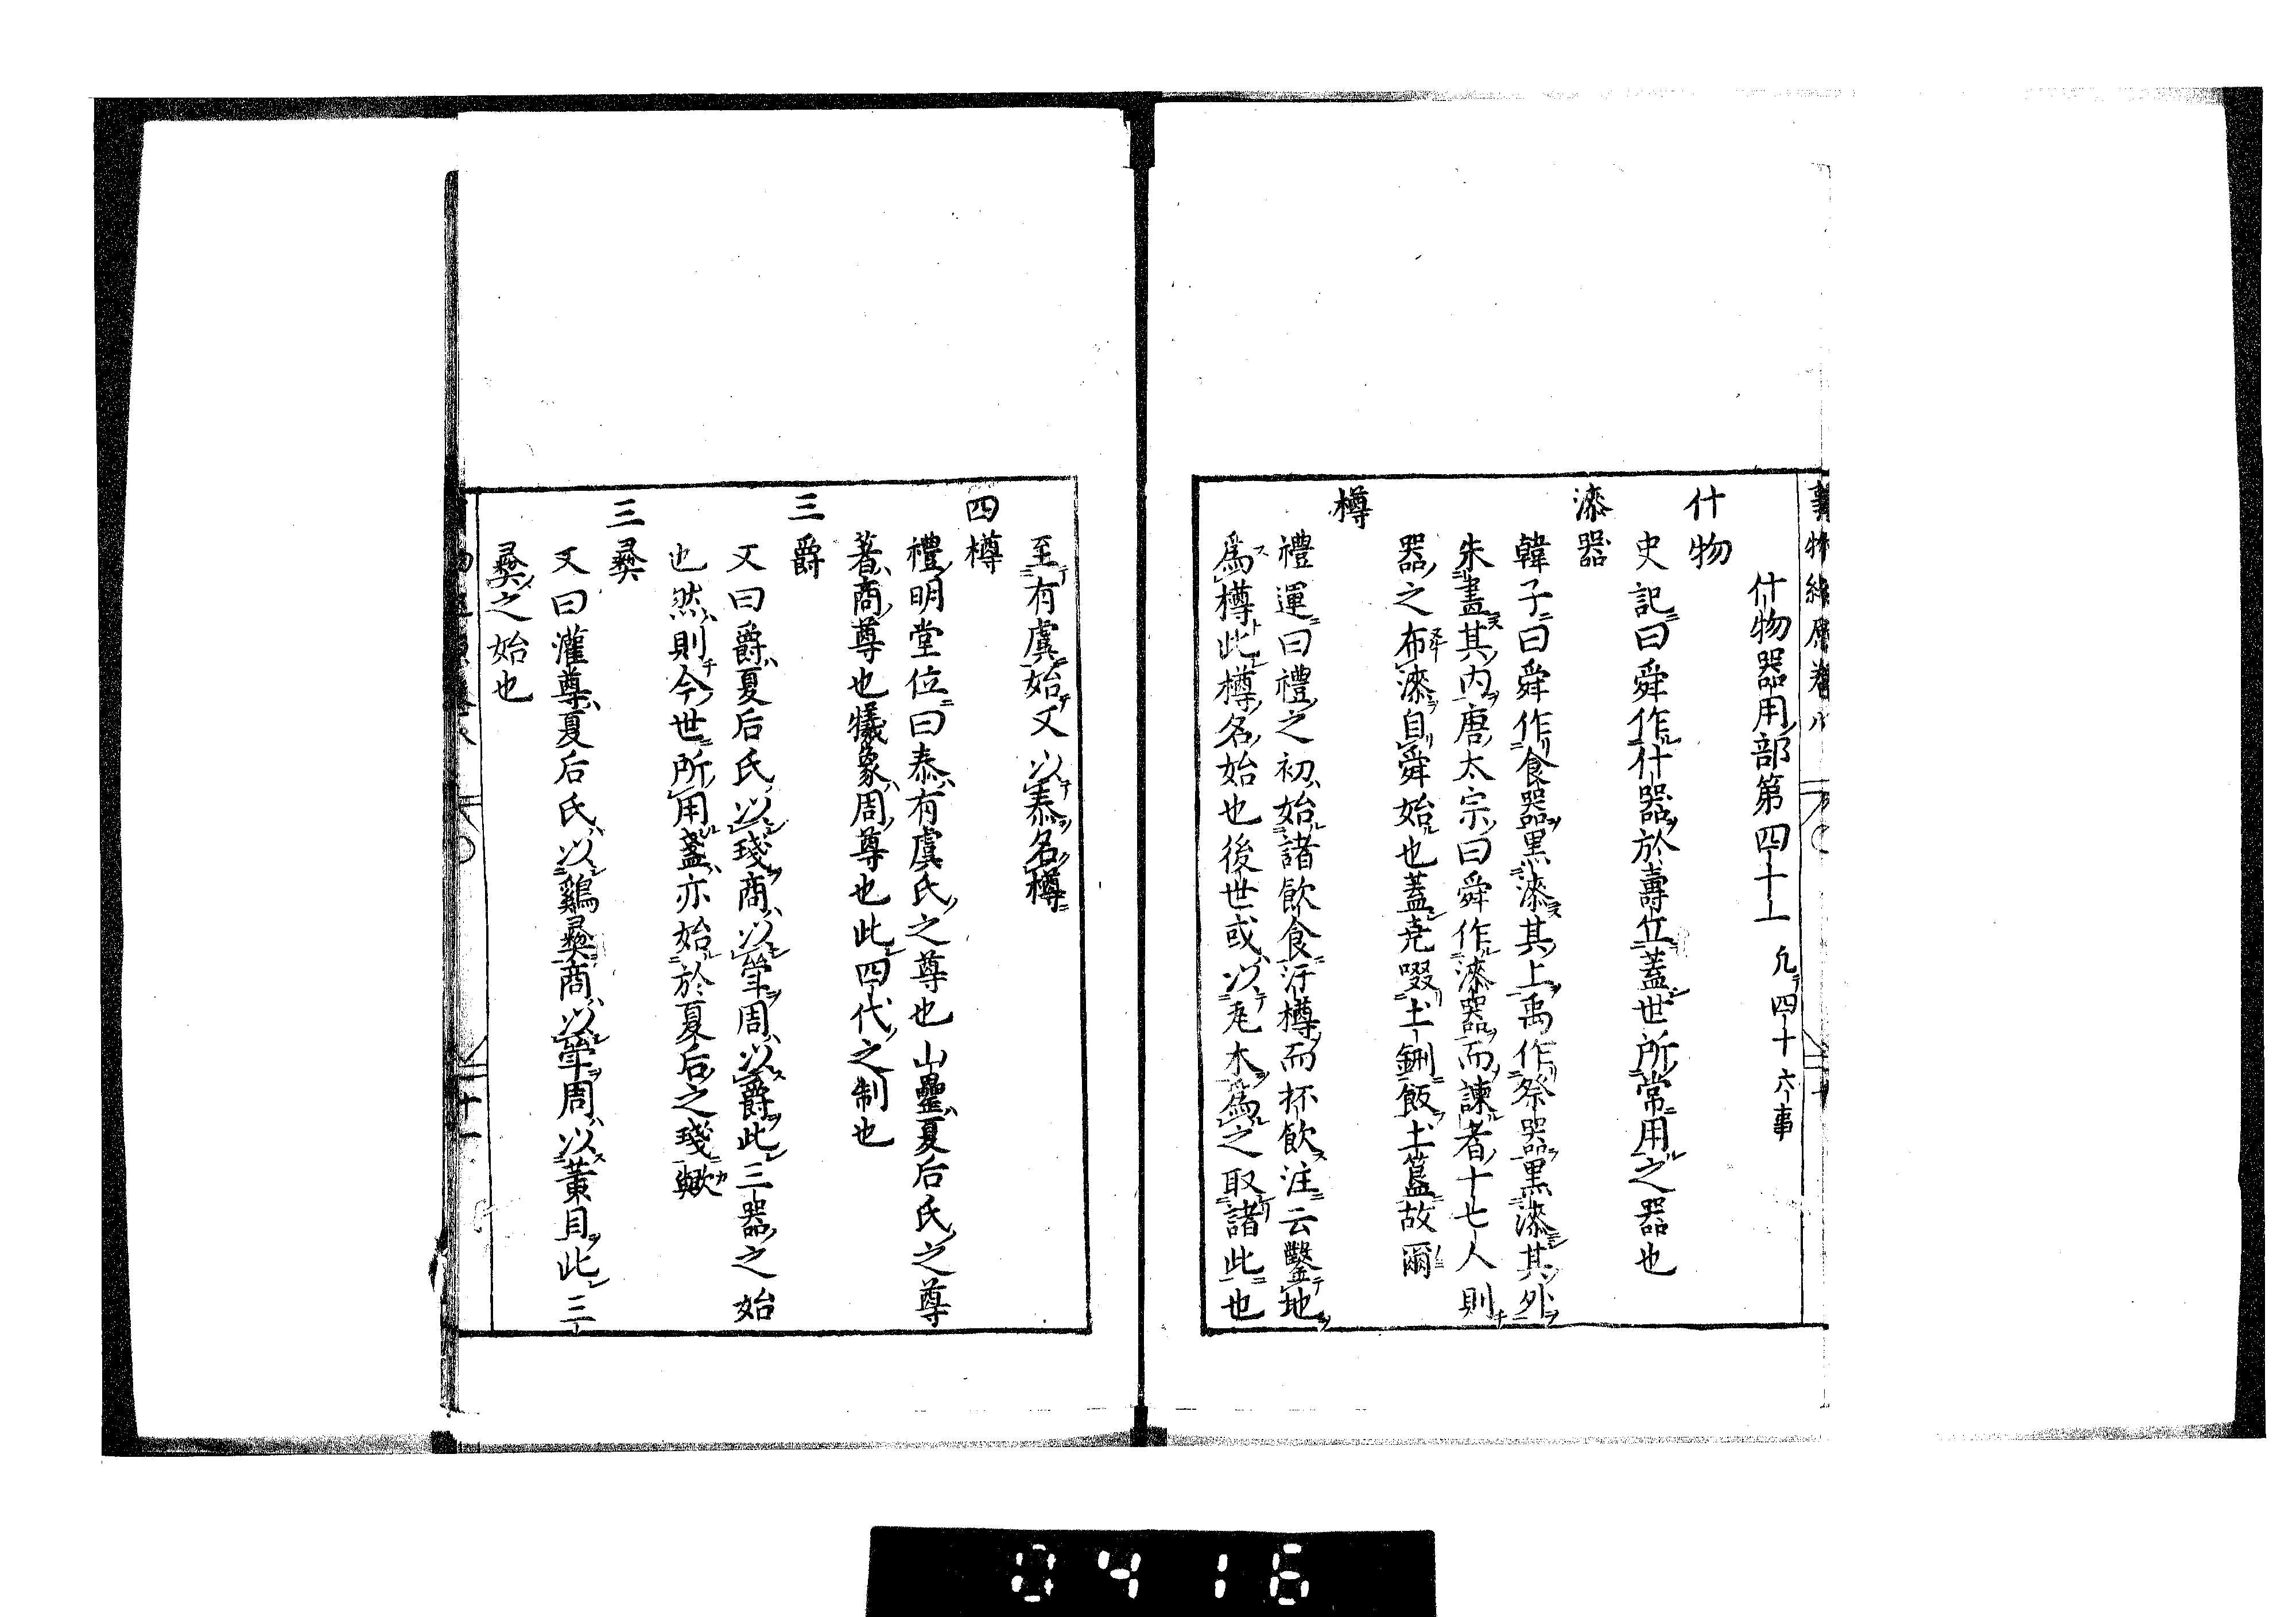 什物器用部第四十一 凡四十六事
什物
史記曰舜作什器於壽丘蓋世所常用之器也
漆器
韓子曰舜作食器黒漆其上禹作祭器黒漆其外
朱畫其内唐太宗曰舜作漆器而諫者十七人則
器之布漆自舜始也蓋尭啜土鉶飯土簋故爾
樽
禮運曰禮之初始諸飲食汙樽而抔飲注云鑿地
爲樽此樽名始也後世或以尾木爲之取諸此也
至有虞始又以泰名樽
四樽
禮明堂位曰泰有虞氏之尊也山罍夏后氏之尊
著商尊也犧象周尊也此四代之制也
三爵
又曰爵夏后氏以琖商以斝周以爵此三器之始
也然則今世所用盞亦始於夏后之琖歟
三彝
又曰灌尊夏后氏以鷄彝商以斝周以黄目此三
彝之始也
十一
0416